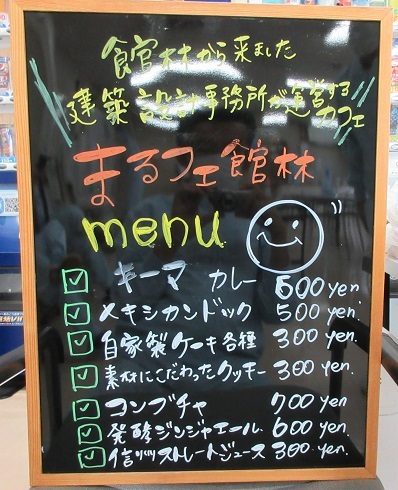 館林から来ました
建築設計事務所が運営する
カフェ
まるフェ館林
menu
キーマ カレー 600 yen
メキシカンドック 500 yen.
自家製ケーキ各種 300 yen.
素材にこだわったクッキー 300 yen.
コンブチャ 700 yen
発酵ジンジャエール 600 yen.
信州ストレートジュース 300 yen.